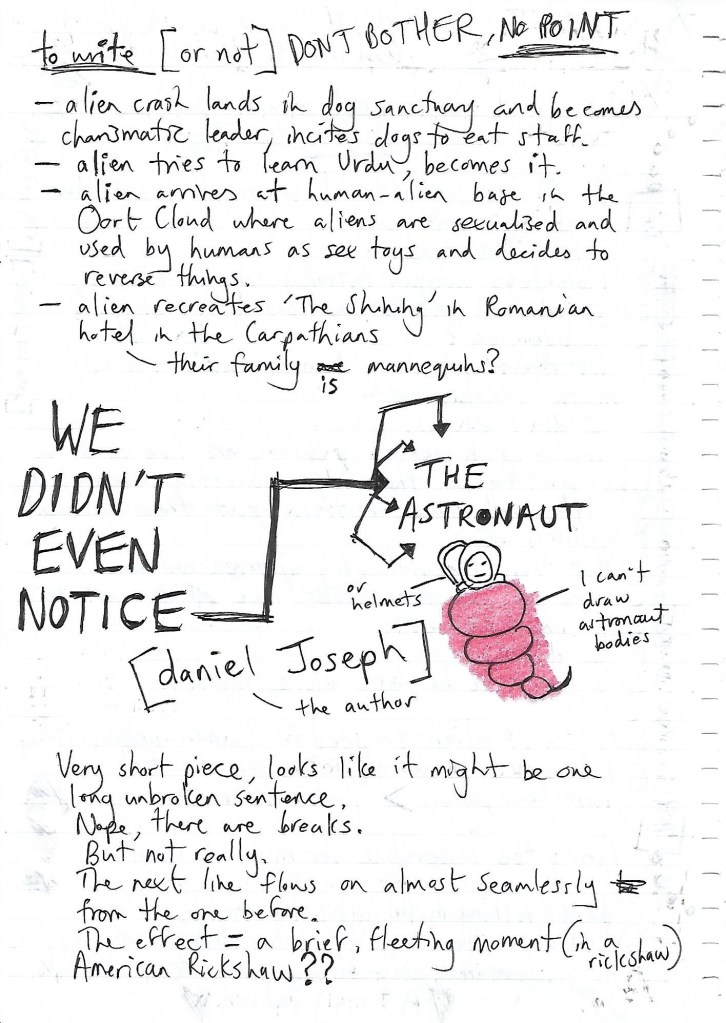 to write [or not] DONT BOTHER, NO POINT
– alien crash lands in dog sanctuary and becomes
charismatic leader, incites dogs to eat staff.
– alien tries to learn Urdu, becomes it.
– alien arrives at human-alien base in the
Oort Cloud where aliens are sexualised and
used by humans as sex toys and decides to
reverse things.
– alien recreates 'The Shining' in Romanian
hotel in the Carpathians
their family is mannequins?
WE
DIDN'T
EVEN
NOTICE
THE
ASTRONAUT
or
helmets
I can't
draw
astronaut
bodies
[daniel Joseph]
the author
Very short piece, looks like it might be one
long unbroken sentence.
Nope, there are breaks.
But not really.
The next line flows on almost seamlessly
from the one before.
The effect = a brief, fleeting moment (in a
rickshaw)
American Rickshaw??